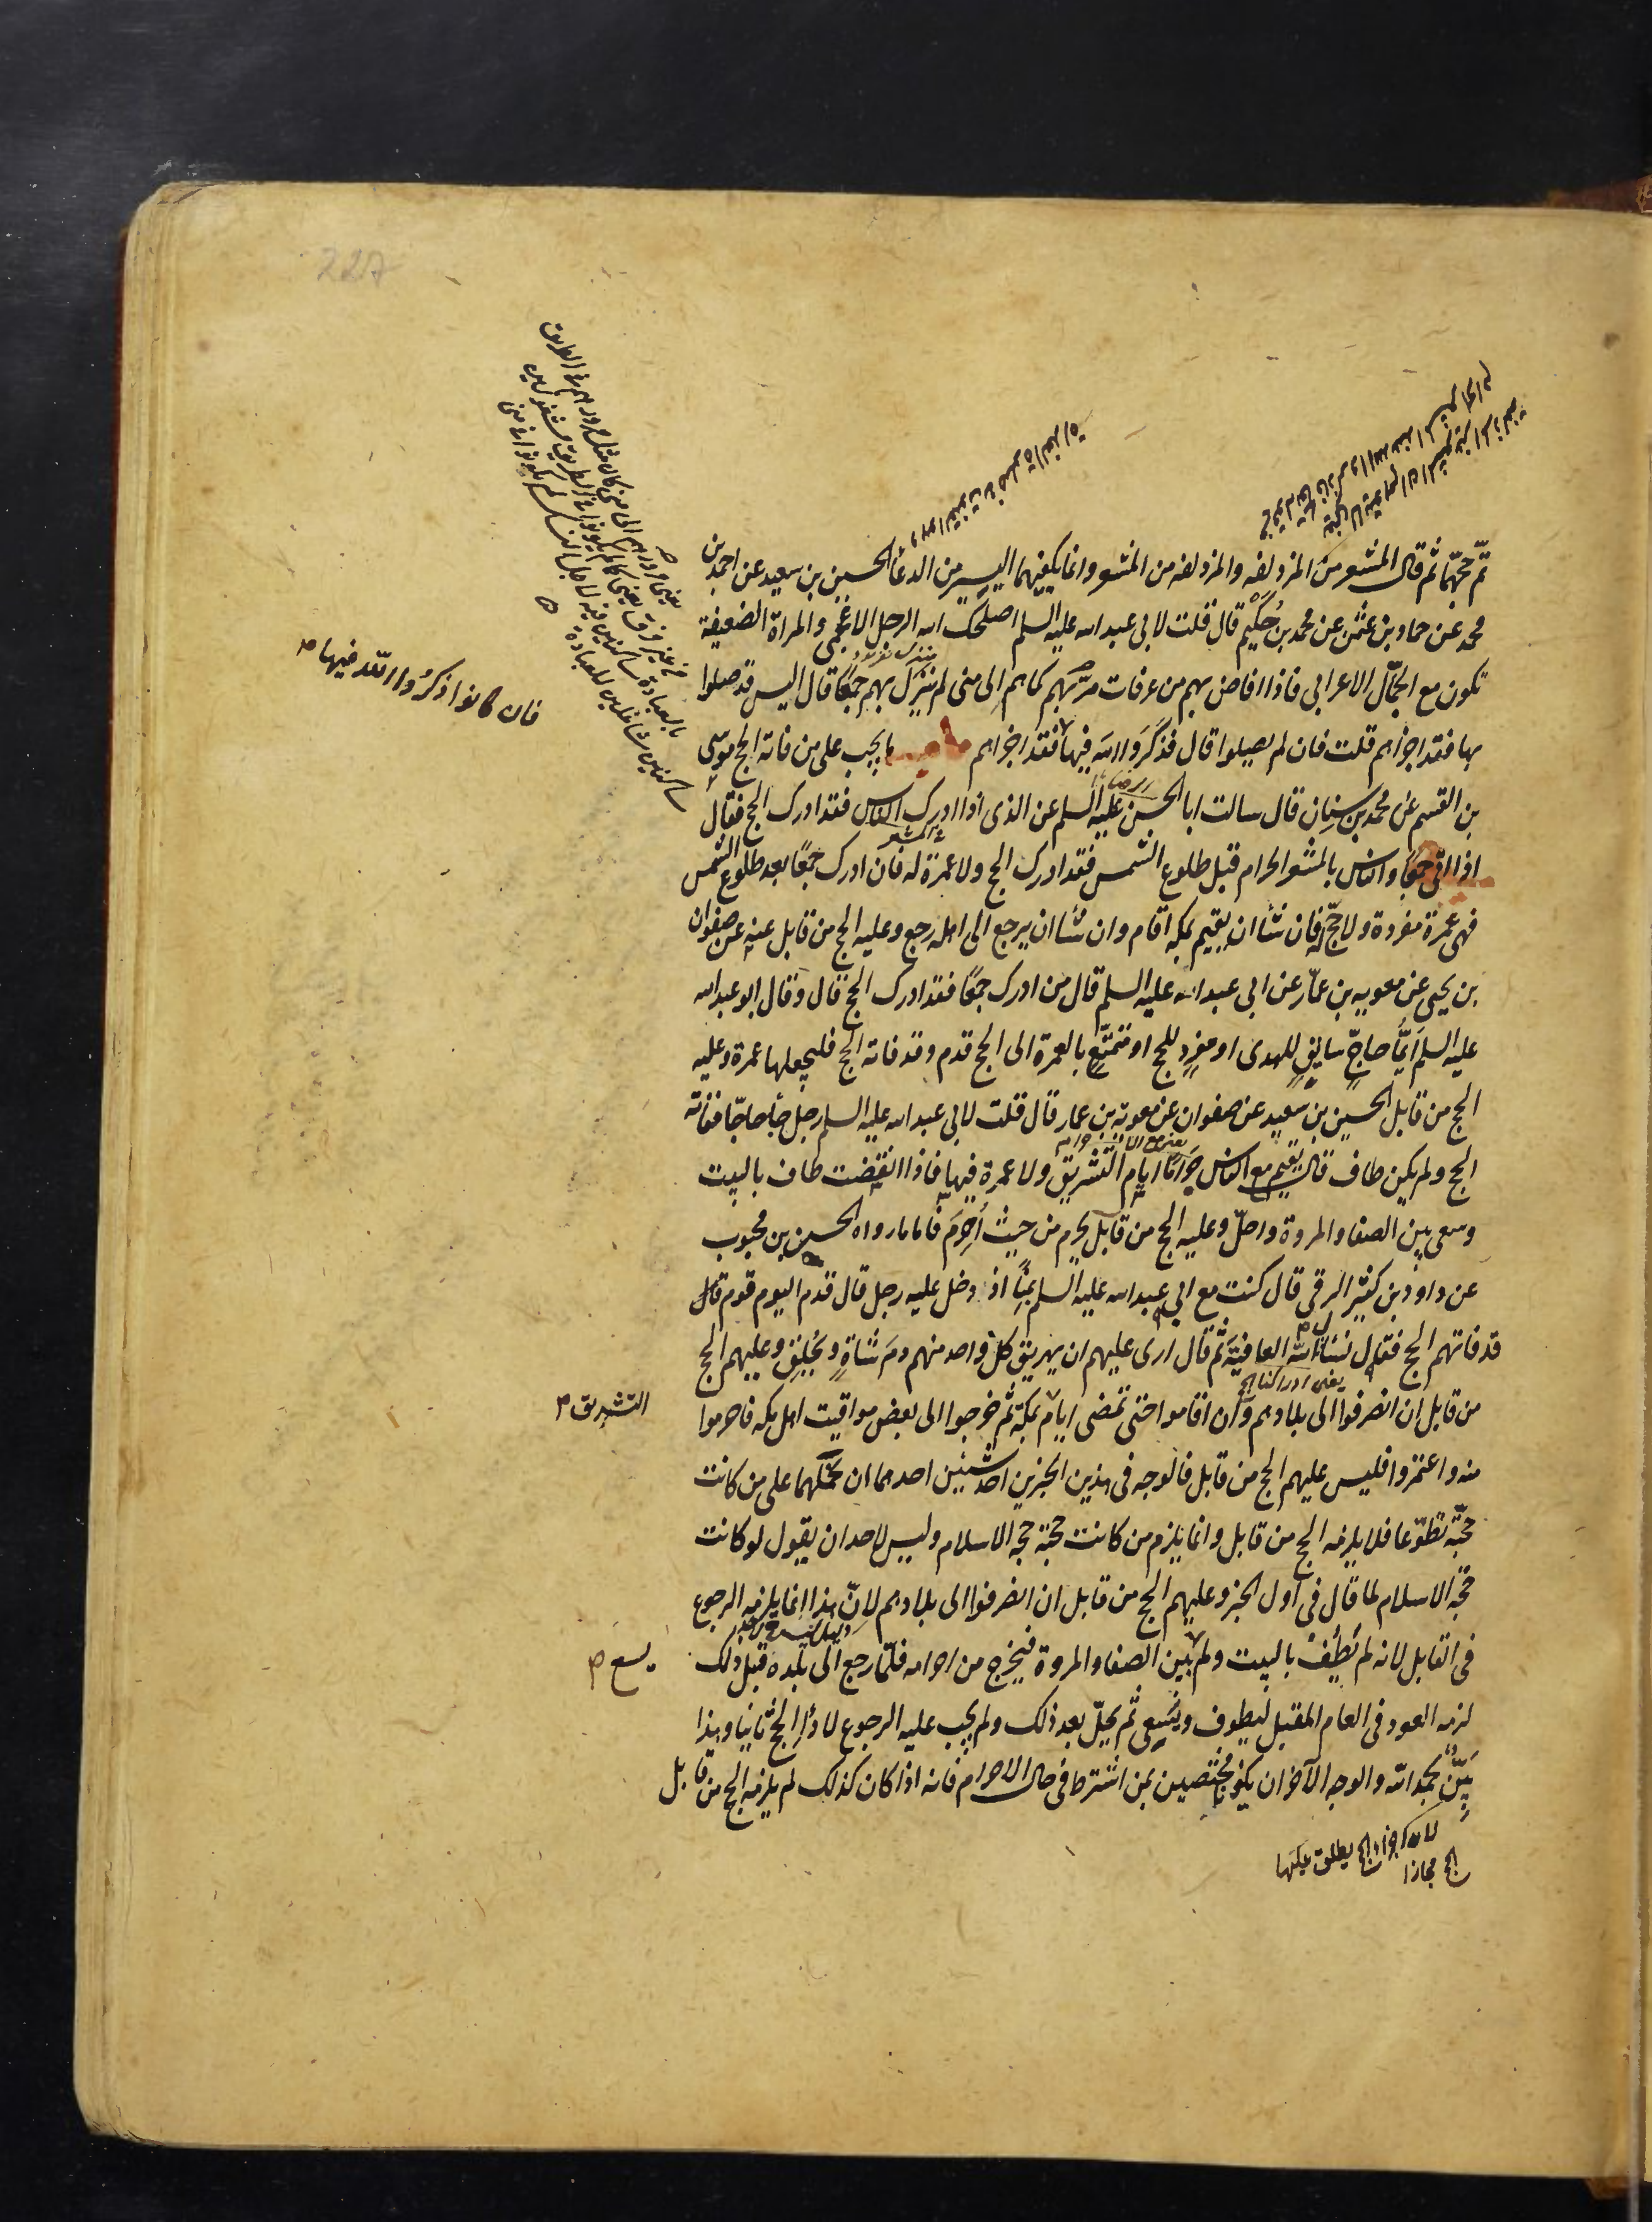 تمّ حجّهما ثم قال المشعر من المزدلفه والمزدلفه من المشعر وانما يكفيهما اليسير من الدعا الحسين بن سعيد عن احمد بن
محمد عن حماد بن عثمن عن محمد بن حُكَيْم قال قلت لابى عبد الله عليه السلم اصلحك الله الرجل الاعجمى والمراة الضعيفة
تكون مع الجمّال الاعرابى فاذا افاض بهم من عرفات مرّ بهم كما هم الى منى لم ينزل بهم جمعًا قال اليس قد صلوا
بها فقد اجزأهم قلت فان لم يصلوا قال فذكروا الله فيها فقد اجزاهم باب ما يجب على من فاته الحج موسى
بن القسم عن محمد بن سنان قال سالت ابا الحسن عليه السلم عن الذى اذا ادرك الناس فقد ادرك الحج فقال
اذا اتى جمعًا والناس بالمشعر الحرام قبل طلوع الشمس فقد ادرك الحج ولا عمرة له فان ادرك جمعًا بعد طلوع الشمس
فهى عمرة مفردة ولا حجّ له فان شآ ان يقيم بمكه اقام وان شآ ان يرجع الى اهله رجع وعليه الحج من قابل عنه عن صفوان
بن يحيى عن معويه بن عمّار عن ابى عبد الله عليه السلم قال من ادرك جمعًا فقد ادرك الحج قال وقال ابو عبد الله
عليه السلم ايّما حاجّ سايق للهدى او مفرد للحج او متمتّع بالعمرة الى الحج قدم وقد فاته الحج فليجعلها عمرة وعليه
الحج من قابل الحسين بن سعيد عن صفوان عن معوية بن عمار قال قلت لابى عبد الله عليه السلم رجل جآ حاجّا ففاته
الحج ولم يكن طاف قال يقيم مع الناس حرامًا ايام التشريق ولا عمرة فيها فاذا انقضت طاف بالبيت
وسعى بين الصفا والمروة واحلّ وعليه الحج من قابل يحرم من حيث أحرم فاما ما رواه الحسن بن محبوب
عن داود بن كثير الرقى قال كنت مع ابى عبد الله عليه السلم بمنًا اذ دخل عليه رجل قال قدم اليوم قوم
قد فاتهم الحج فقال نسئل الله العافية ثم قال ارى عليهم ان يهريق كل واحد منهم دم شاةٍ ويحلق وعليهم الحج
من قابل ان انصرفوا الى بلادهم وان اقاموا حتى تمضى ايام بمكة ثم خرجوا الى بعض مواقيت اهل مكه فاحرموا
منه واعتمروا فليس عليهم الحج من قابل فالوجه فى هذين الخبرين احد شيئين احدهما ان نحملهما على من كانت
حجّته تطوّعا فلا يلزمه الحج من قابل وانما يلزم من كانت حجّته حجه الاسلام وليس لاحد ان يقول لو كانت
حجّه الاسلام لما قال فى اول الخبر وعليهم الحج من قابل ان انصرفوا الى بلادهم لانّ هذا انما يلزمه الرجوع
فى القابل لانه لم يطف بالبيت ولم بين الصفا والمروة فيخرج من احرامه فلمّا رجع الى بلده قبل ذلك
لزمه العود فى العام المقبل ليطوف ويسعى ثم يحلّ بعد ذلك ولم يجب عليه الرجوع لادآ الحج ثانيا وهذا
بيّن بحمد الله والوجه الآخر ان يكونا مختصين بمن اشترط فى حال الاحرام فانه اذا كان كذلك لم يلزمه الحج من قابل
فان كانوا ذكرُوا اللّه فيها
التشريق
يسع
227